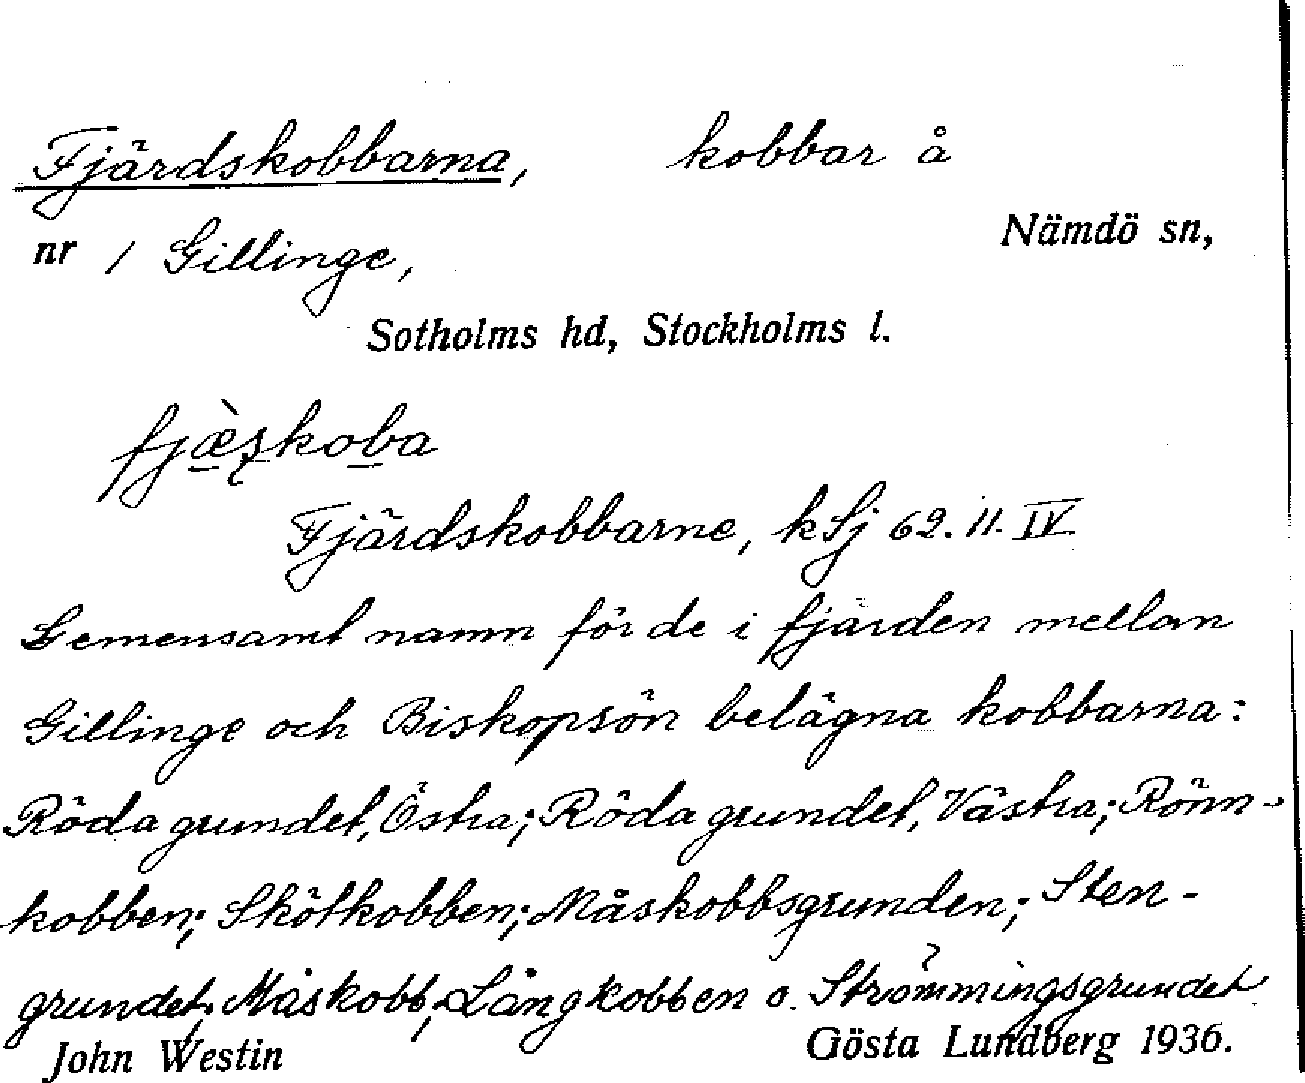 Fjärdskobbarna, kobbar å
Nämdö sn,
nr 1 Gillinge,
Sotholms hd, Stockholms l.
fjæ̀ʂkoba
Fjärdskobbarne, kSj 62. 11. IV
Gemensamt namn för de i fjärden mellan
Gillinge och Biskopsön belägna kobbarna:
Röda grundet, Östra; Röda grundet, Västra; Rönn-
kobben; Skötkobben; Måskobbsgrunden; Sten-
grundet; Måskobb; Långkobben o. Strömmingsgrundet
John Westin Gösta Lundberg 1936.